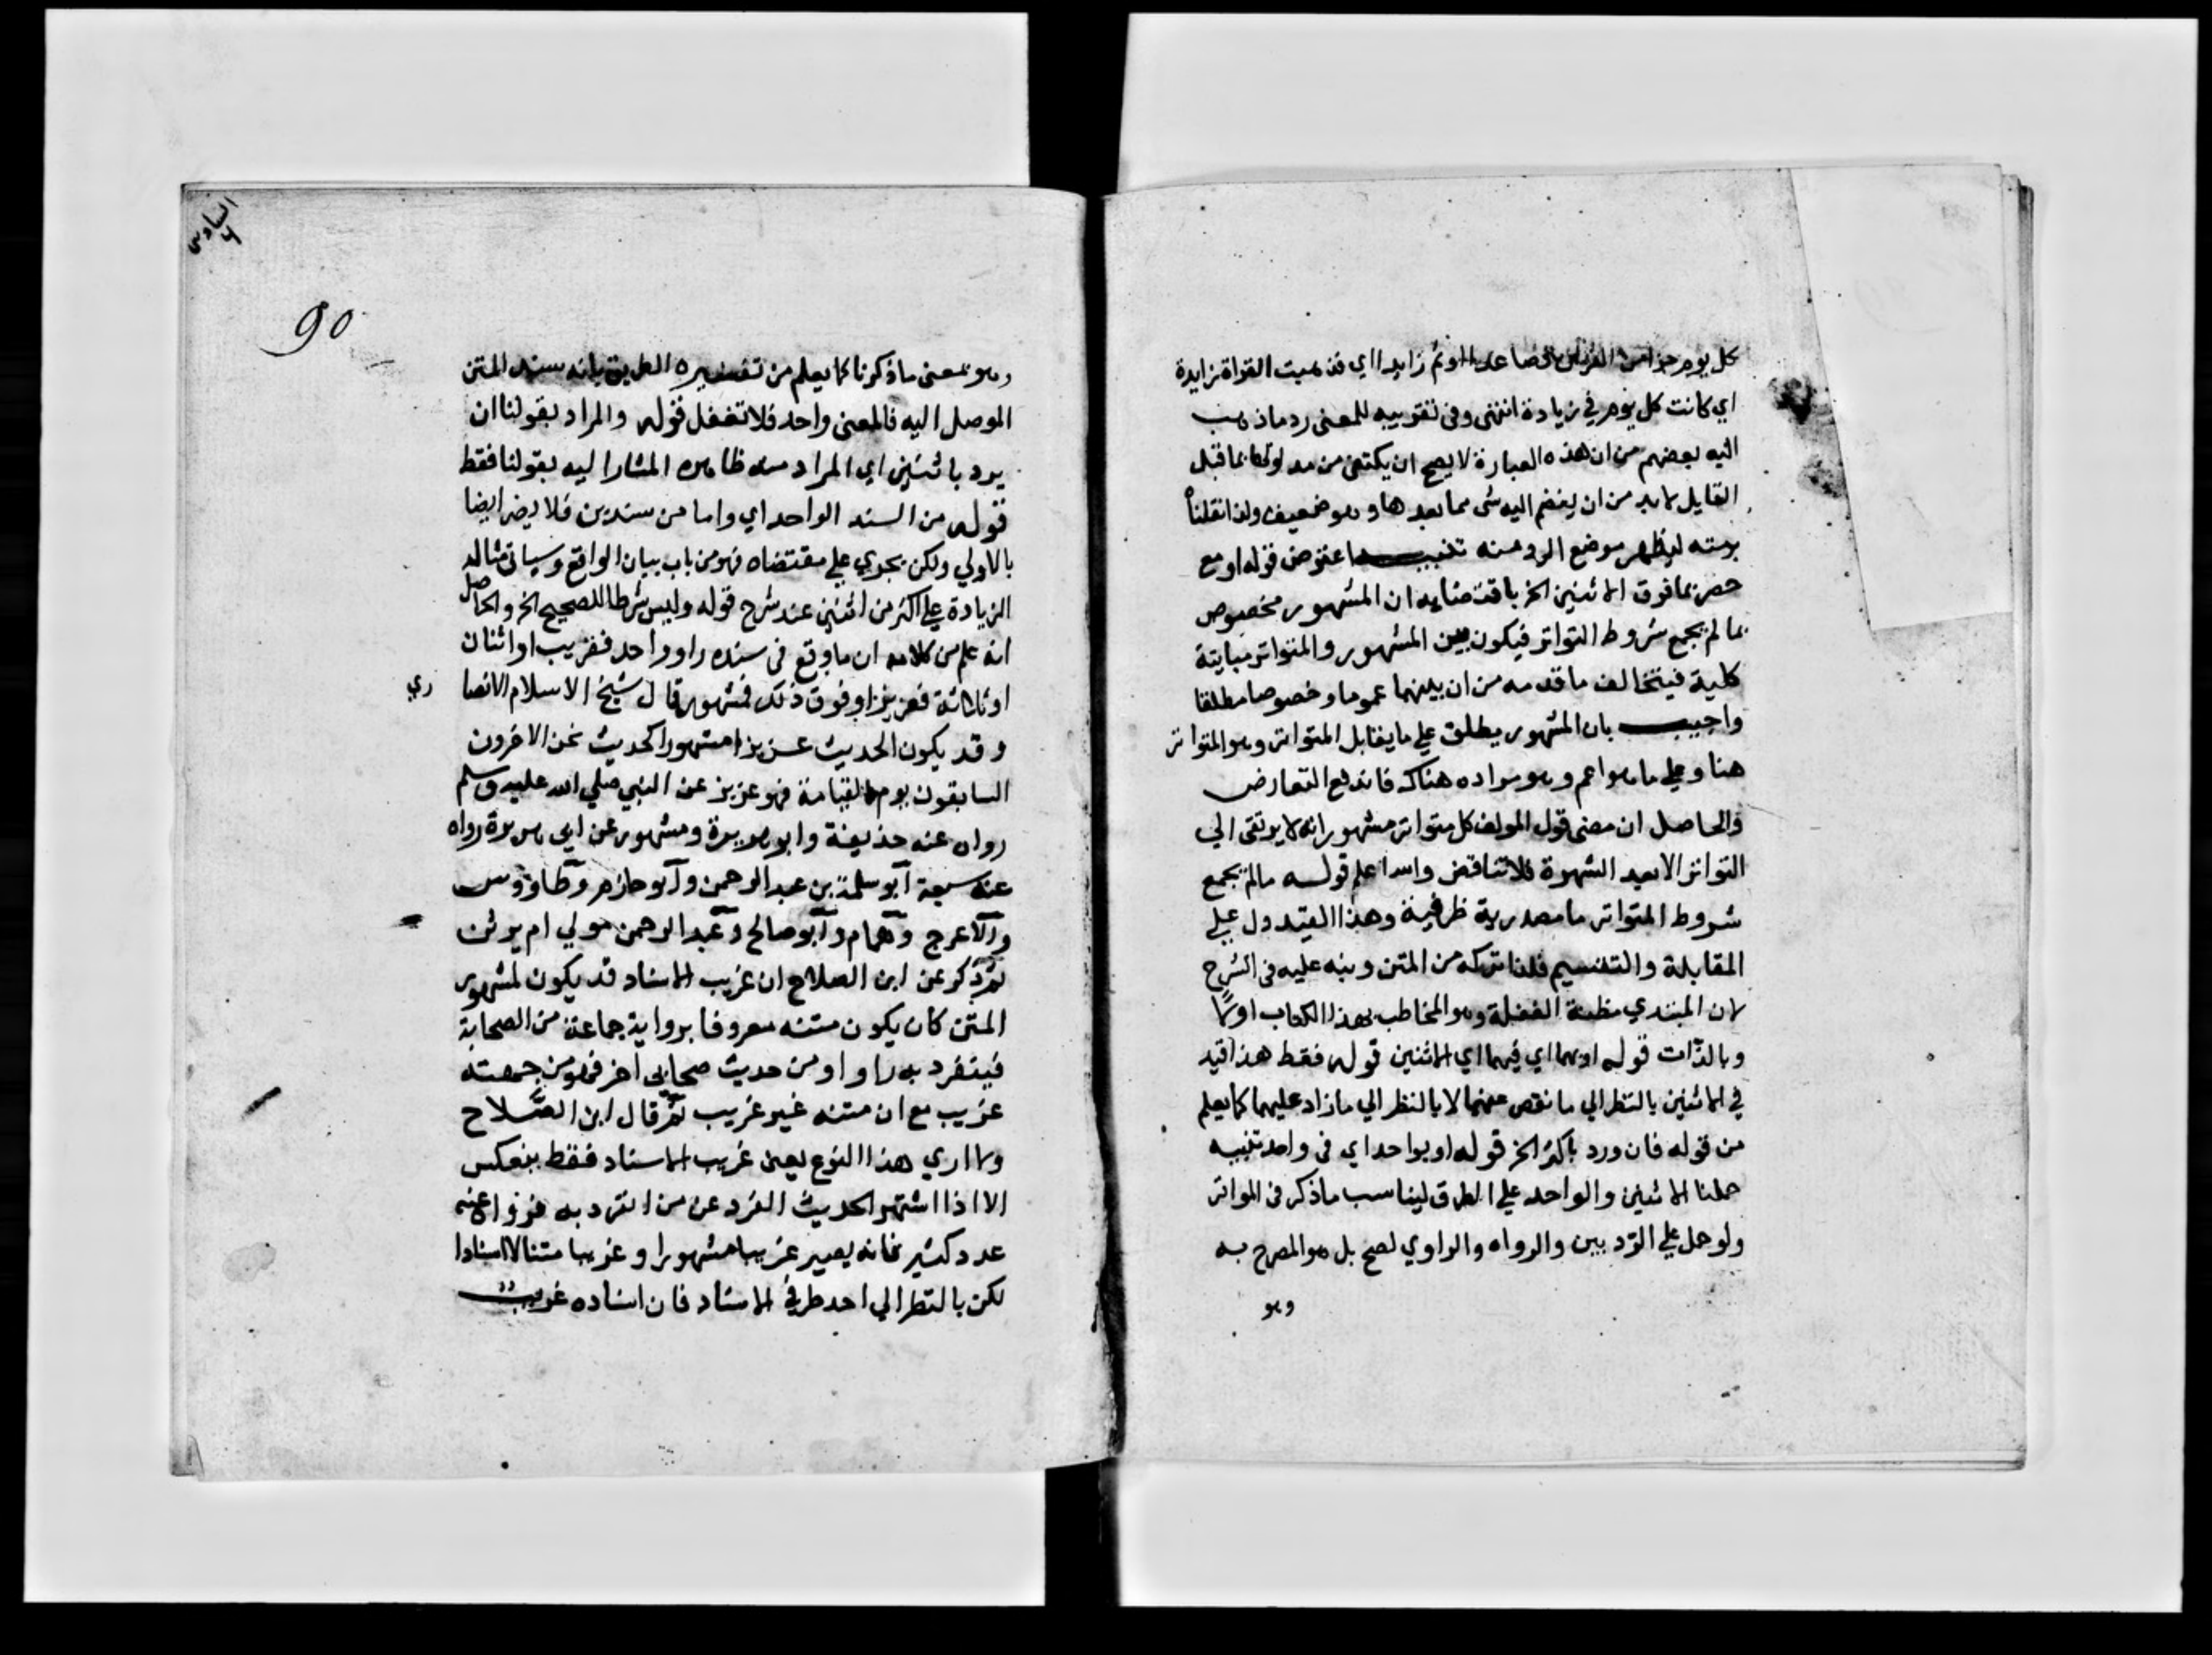 كل يوم جزامن القران فصاعدا او ثم زايدا اي فذهبت القراة زايدة
اي كانت كل يوم في زيادة انتهى وفى تقريبه للمعنى رد ماذهب
اليه بعضهم من ان هذه العبارة لا يصح ان يكتفى من مدلولها بما قبل
القايل لابد من ان ينضم اليه شى مما بعدها وهو ضعيف ولذا نقلنا
برمته ليظهر موضع الرد منه تنبيه اعترض قوله او مع
حصر بما فوق الاثنين الخ باقتضايه ان المشهور مخصوص
بما لم يجمع شروط التواتر فيكون بين المشهور والمتواتر مباينة
كلية فيتخالف ما قدمه من ان بينهما عموما وخصوصا مطلقا
واجيب بان المشهور يطلق على ما يقابل المتواتر وهو المتواتر
هنا وعلى ما هو اعم وهو مراده هناك فاندفع التعارض
والحاصل ان معنى قول المولف كل متواتر مشهور انه لا يرتقى الي
التواتر الا بعد الشهرة فلا تناقض والله اعلم قوله مالم يجمع
شروط المتواتر ما مصدرية ظرفية وهذا القيد دل على
المقابلة والتقسيم فلذا تركه من المتن ونبه عليه فى الشرح
لان المبتدي مظنة الغفلة وهو المخاطب بهذا الكتاب اولا
وبالذات قوله او بهما اي فيهما اي الاثنين قوله فقط هذا قيد
في الاثنين بالنظر الي ما نقص عنهما لا بالنظر الي مازاد عليهما كما يعلم
من قوله فان ورد باكثر الخ قوله او بواحد اي فى واحد تنبيه
حملنا الاثنين والواحد على الطرق ليناسب ما ذكر فى المواتر
ولو حمل على الرد بين والرواه والراوي لصح بل هو المصرح به
وهو
السادس
90
وهو بمعنى ماذكرنا كما يعلم من تفسيره الطريق بانه سند المتن
الموصل اليه فالمعنى واحد فلا تغفل قوله والمراد بقولنا ان
يرد باثنين اي المراد منه ظاهره المشار اليه بقولنا فقط
قوله من السند الواحد اي واما من سندين فلا يضر ايضا
بالاولي ولكن يجري على مقتضاه فهو من باب بيان الواقع وسياتى مثاله
الزيادة على اكثر من اثنين عند شرح قوله وليس شرطا للصحيح الخ والحاصل
انه علم من كلامه ان ما وقع فى سنده راو واحد فغريب او اثنان
او ثلاثة فعزيز او فوق ذلك فمشهور قال شيخ الاسلام الانصا
ري
وقد يكون الحديث عزيزا مشهورا كحديث نحن الاخرون
السابقون يوم القيامة فهو عزيز عن النبي صلي الله عليه وسلم
رواه عنه حذيفة وابو هريرة ومشهور عن ابى هريرة رواه
عنه سبعة ابو سلمة بن عبد الرحمن وابو حازم وطاووس
والاعرج وهمام وابو صالح وعبد الرحمن مولي ام برثن
ثم ذكر عن ابن الصلاح ان غريب الاسناد قد يكون لمشهور
المتن كان يكون متنه معروفا برواية جماعة من الصحابة
فينفرد به راو او من حديث صحابى اخر فهو من جهته
غريب مع ان متنه غير غريب ثم قال ابن الصلاح
ولا اري هذا النوع يعنى غريب الاسناد فقط ينعكس
الا اذا اشتهر الحديث الفرد عن من انفرد به فرواه عنه
عدد كثير فانه يصير غريبا مشهورا وغريبا متنا لا اسنادا
لكن بالنظر الي احد طرفي الاسناد فان اسناده غريب